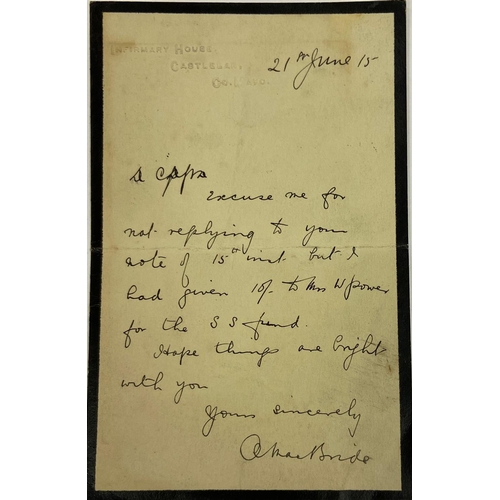 INFIRMARY HOUSE,
CASTLEBAR,
CO. MAYO.
21st June 15
Excuse me for
not replying to your
note of 15th inst but I
had given 10/- to Mrs W Power
for the S S fund.
Hope things are bright
with you
Yours sincerely
A MacBride